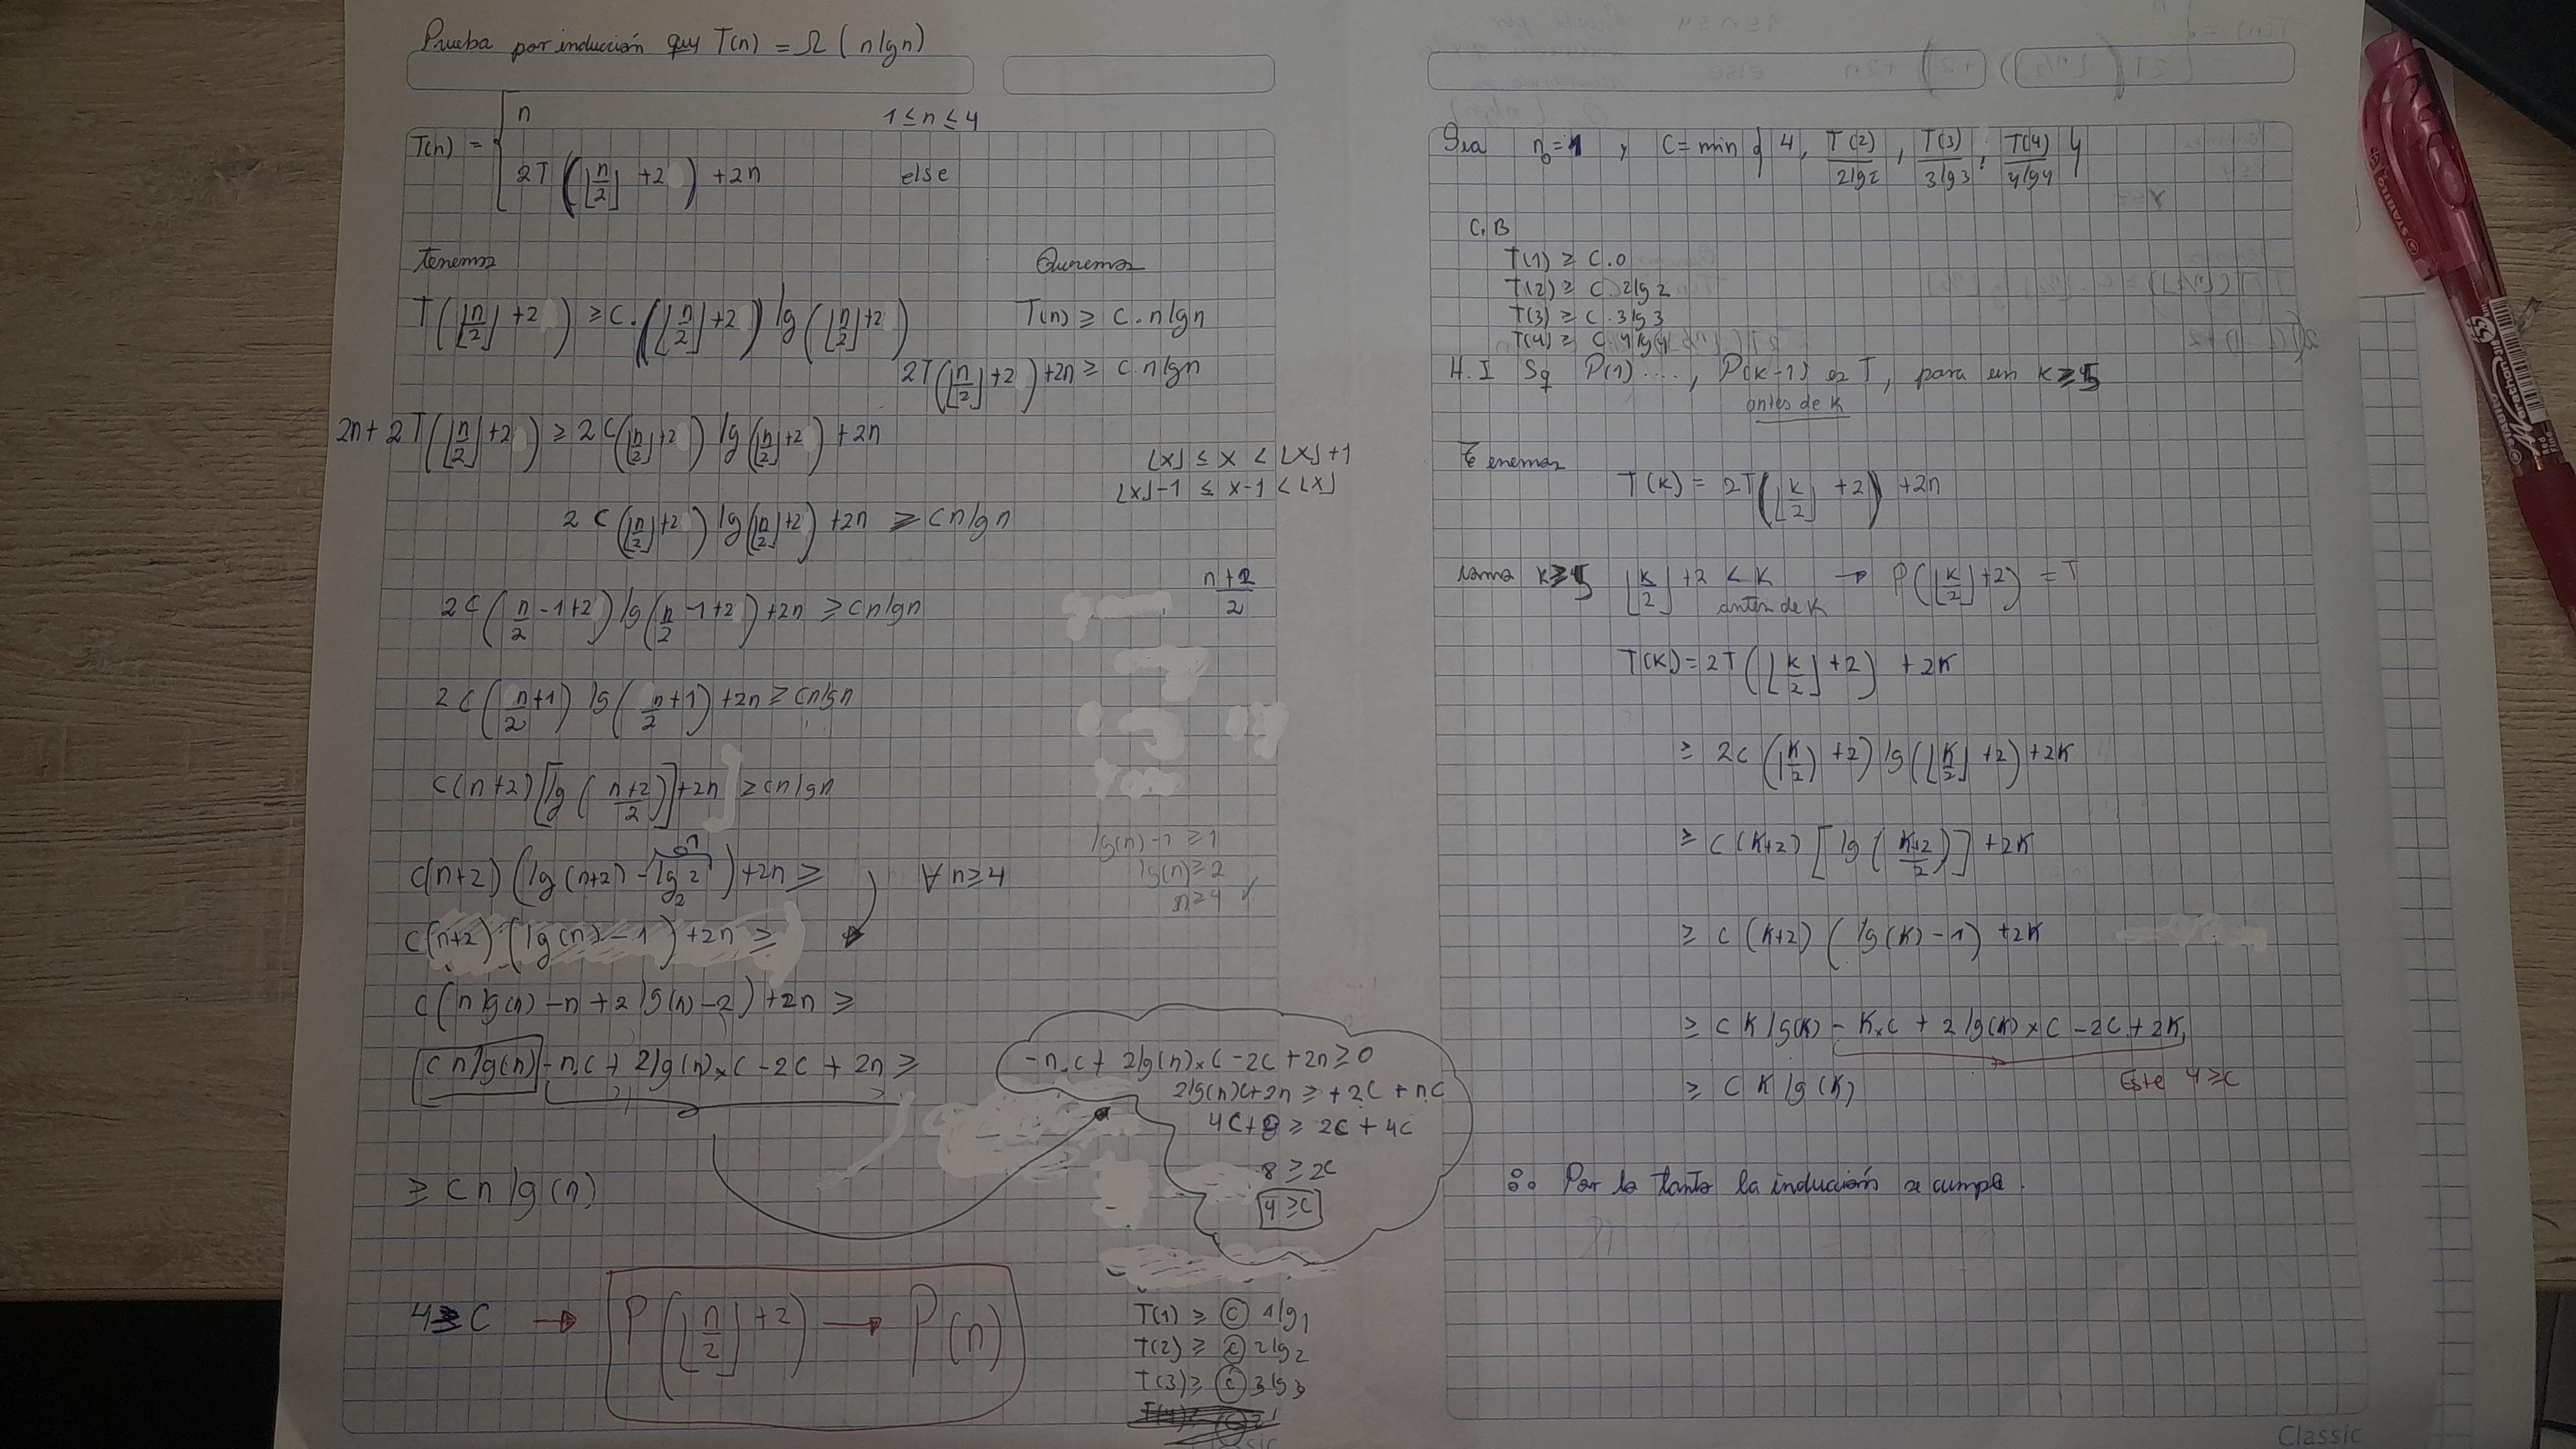 Prueba por inducción que T(n) = Ω (n lg n)
T(n) = { n 1 ≤ n ≤ 4
2T(⌊n/2⌋ +2) +2n else
Tenemos Queremos
T(⌊n/2⌋ +2) ≥ C.(⌊n/2⌋ +2) lg(⌊n/2⌋ +2) T(n) ≥ C.n lg n
2T(⌊n/2⌋ +2) +2n ≥ C.n lg n
2n + 2T(⌊n/2⌋ +2) ≥ 2C(⌊n/2⌋ +2) lg(⌊n/2⌋ +2) +2n
⌊x⌋ ≤ x < ⌊x⌋+1
⌊x⌋-1 ≤ x-1 < ⌊x⌋
2C(⌊n/2⌋ +2) lg(⌊n/2⌋ +2) +2n ≥ C n lg n
n+2/2
2C(n/2 -1+2) lg(n/2 -1+2) +2n ≥ C n lg n
2C(n/2 +1) lg(n/2 +1) +2n ≥ C n lg n
C(n+2)[lg(n+2/2)] +2n ≥ C n lg n
C(n+2)(lg(n+2) - lg₂2) +2n ≥ ∀ n ≥ 4
C(n+2)(lg(n) - 1) +2n ≥
lg(n) -1 ≥ 1
lg(n) ≥ 2
n ≥ 4 ✓
C(n lg(n) - n + 2 lg(n) - 2) +2n ≥
C n lg(n) - n.C + 2 lg(n)×C - 2C + 2n ≥
-n.C + 2lg(n)×C -2C +2n ≥ 0
2lg(n)C+2n ≥ +2C + nC
4C+8 ≥ 2C + 4C
8 ≥ 2C
4 ≥ C
≥ C n lg(n)
4 ≥ C → P(⌊n/2⌋ +2) → P(n)
T(1) ≥ C 1lg1
T(2) ≥ C 2lg2
T(3) ≥ C 3lg3
Sea n₀=1 y C = min { 4, T(2)/2lg2, T(3)/3lg3, T(4)/4lg4 }
C.B
T(1) ≥ C.0
T(2) ≥ C.2lg2
T(3) ≥ C.3lg3
T(4) ≥ C.4lg4
H.I Sq P(1)...., P(k-1) es T, para un k ≥ 5
antes de k
Tenemos
T(k) = 2T(⌊k/2⌋ +2) +2n
como k ≥ 5 ⌊k/2⌋ +2 < k → P(⌊k/2⌋ +2) = T
antes de k
T(k) = 2T(⌊k/2⌋ +2) + 2k
≥ 2C(⌊k/2⌋ +2) lg(⌊k/2⌋ +2) +2k
≥ C(k+2) [lg(k+2/2)] +2k
≥ C(k+2) (lg(k) - 1) +2k
≥ C k lg(k) - k×C + 2 lg(k)×C - 2C + 2k
≥ C k lg(k) Este 4 ≥ C
∴ Por lo tanto la inducción se cumple.
Classic